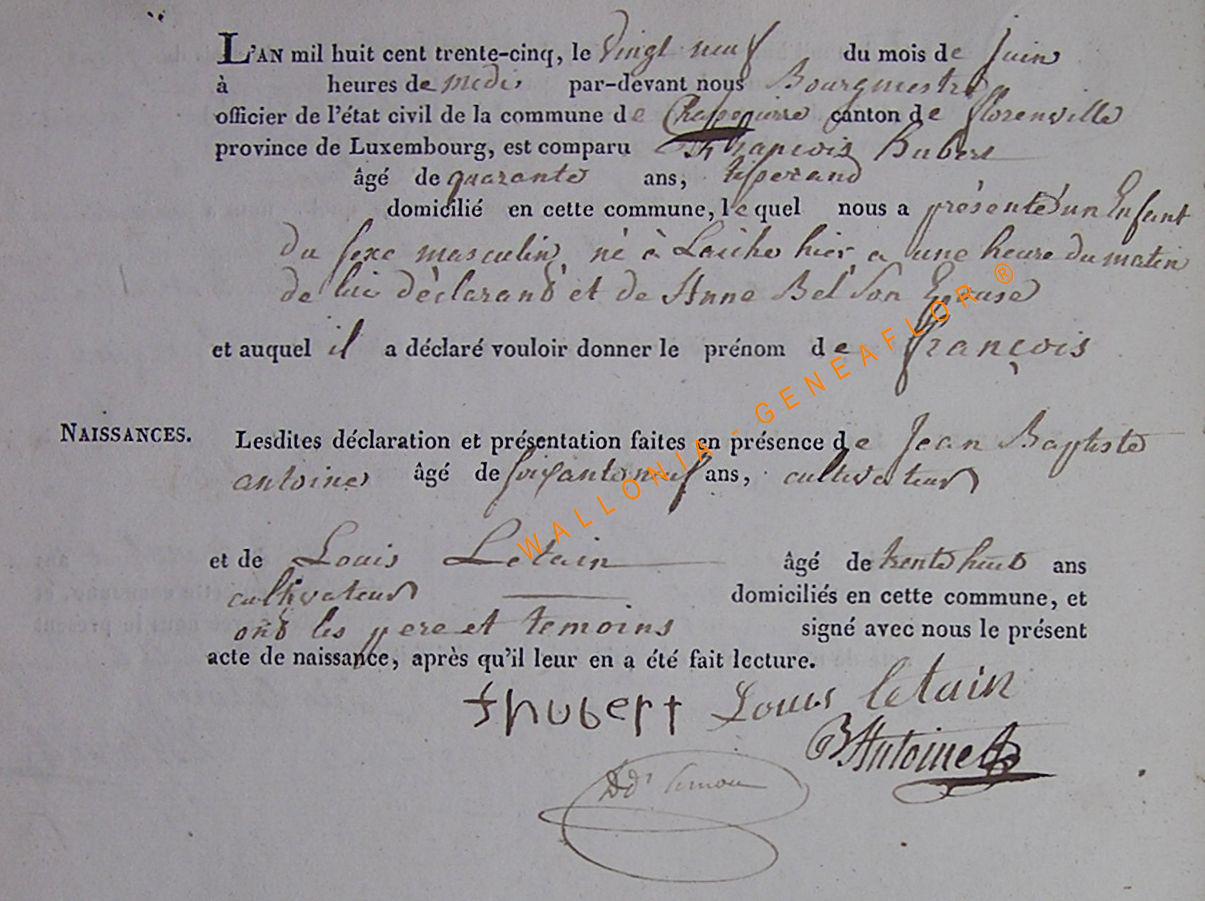 L'AN mil huit cent trente-cinq, le vingt neuf du mois de juin
à heures de midi par-devant nous Bourgmestre
officier de l'état civil de la commune de Chassepierre canton de florenville
province de Luxembourg, est comparu françois hubert
âgé de quarante ans, tisserand
domicilié en cette commune, lequel nous a présenté un Enfant
du sexe masculin, né à Laiche hier a une heure du matin
de lui déclarand et de Anne Bel son Epouse
et auquel il a déclaré vouloir donner le prénom de françois
NAISSANCES.
Lesdites déclaration et présentation faites en présence de Jean Baptiste
antoine âgé de soixante neuf ans, cultivateur
et de Louis Letain âgé de trente huit ans
cultivateur domiciliés en cette commune, et
ont les pere et temoins signé avec nous le présent
acte de naissance, après qu'il leur en a été fait lecture.
fhubert Louis letain
B Antoine
WALLONIA - GENEAFLOR ®